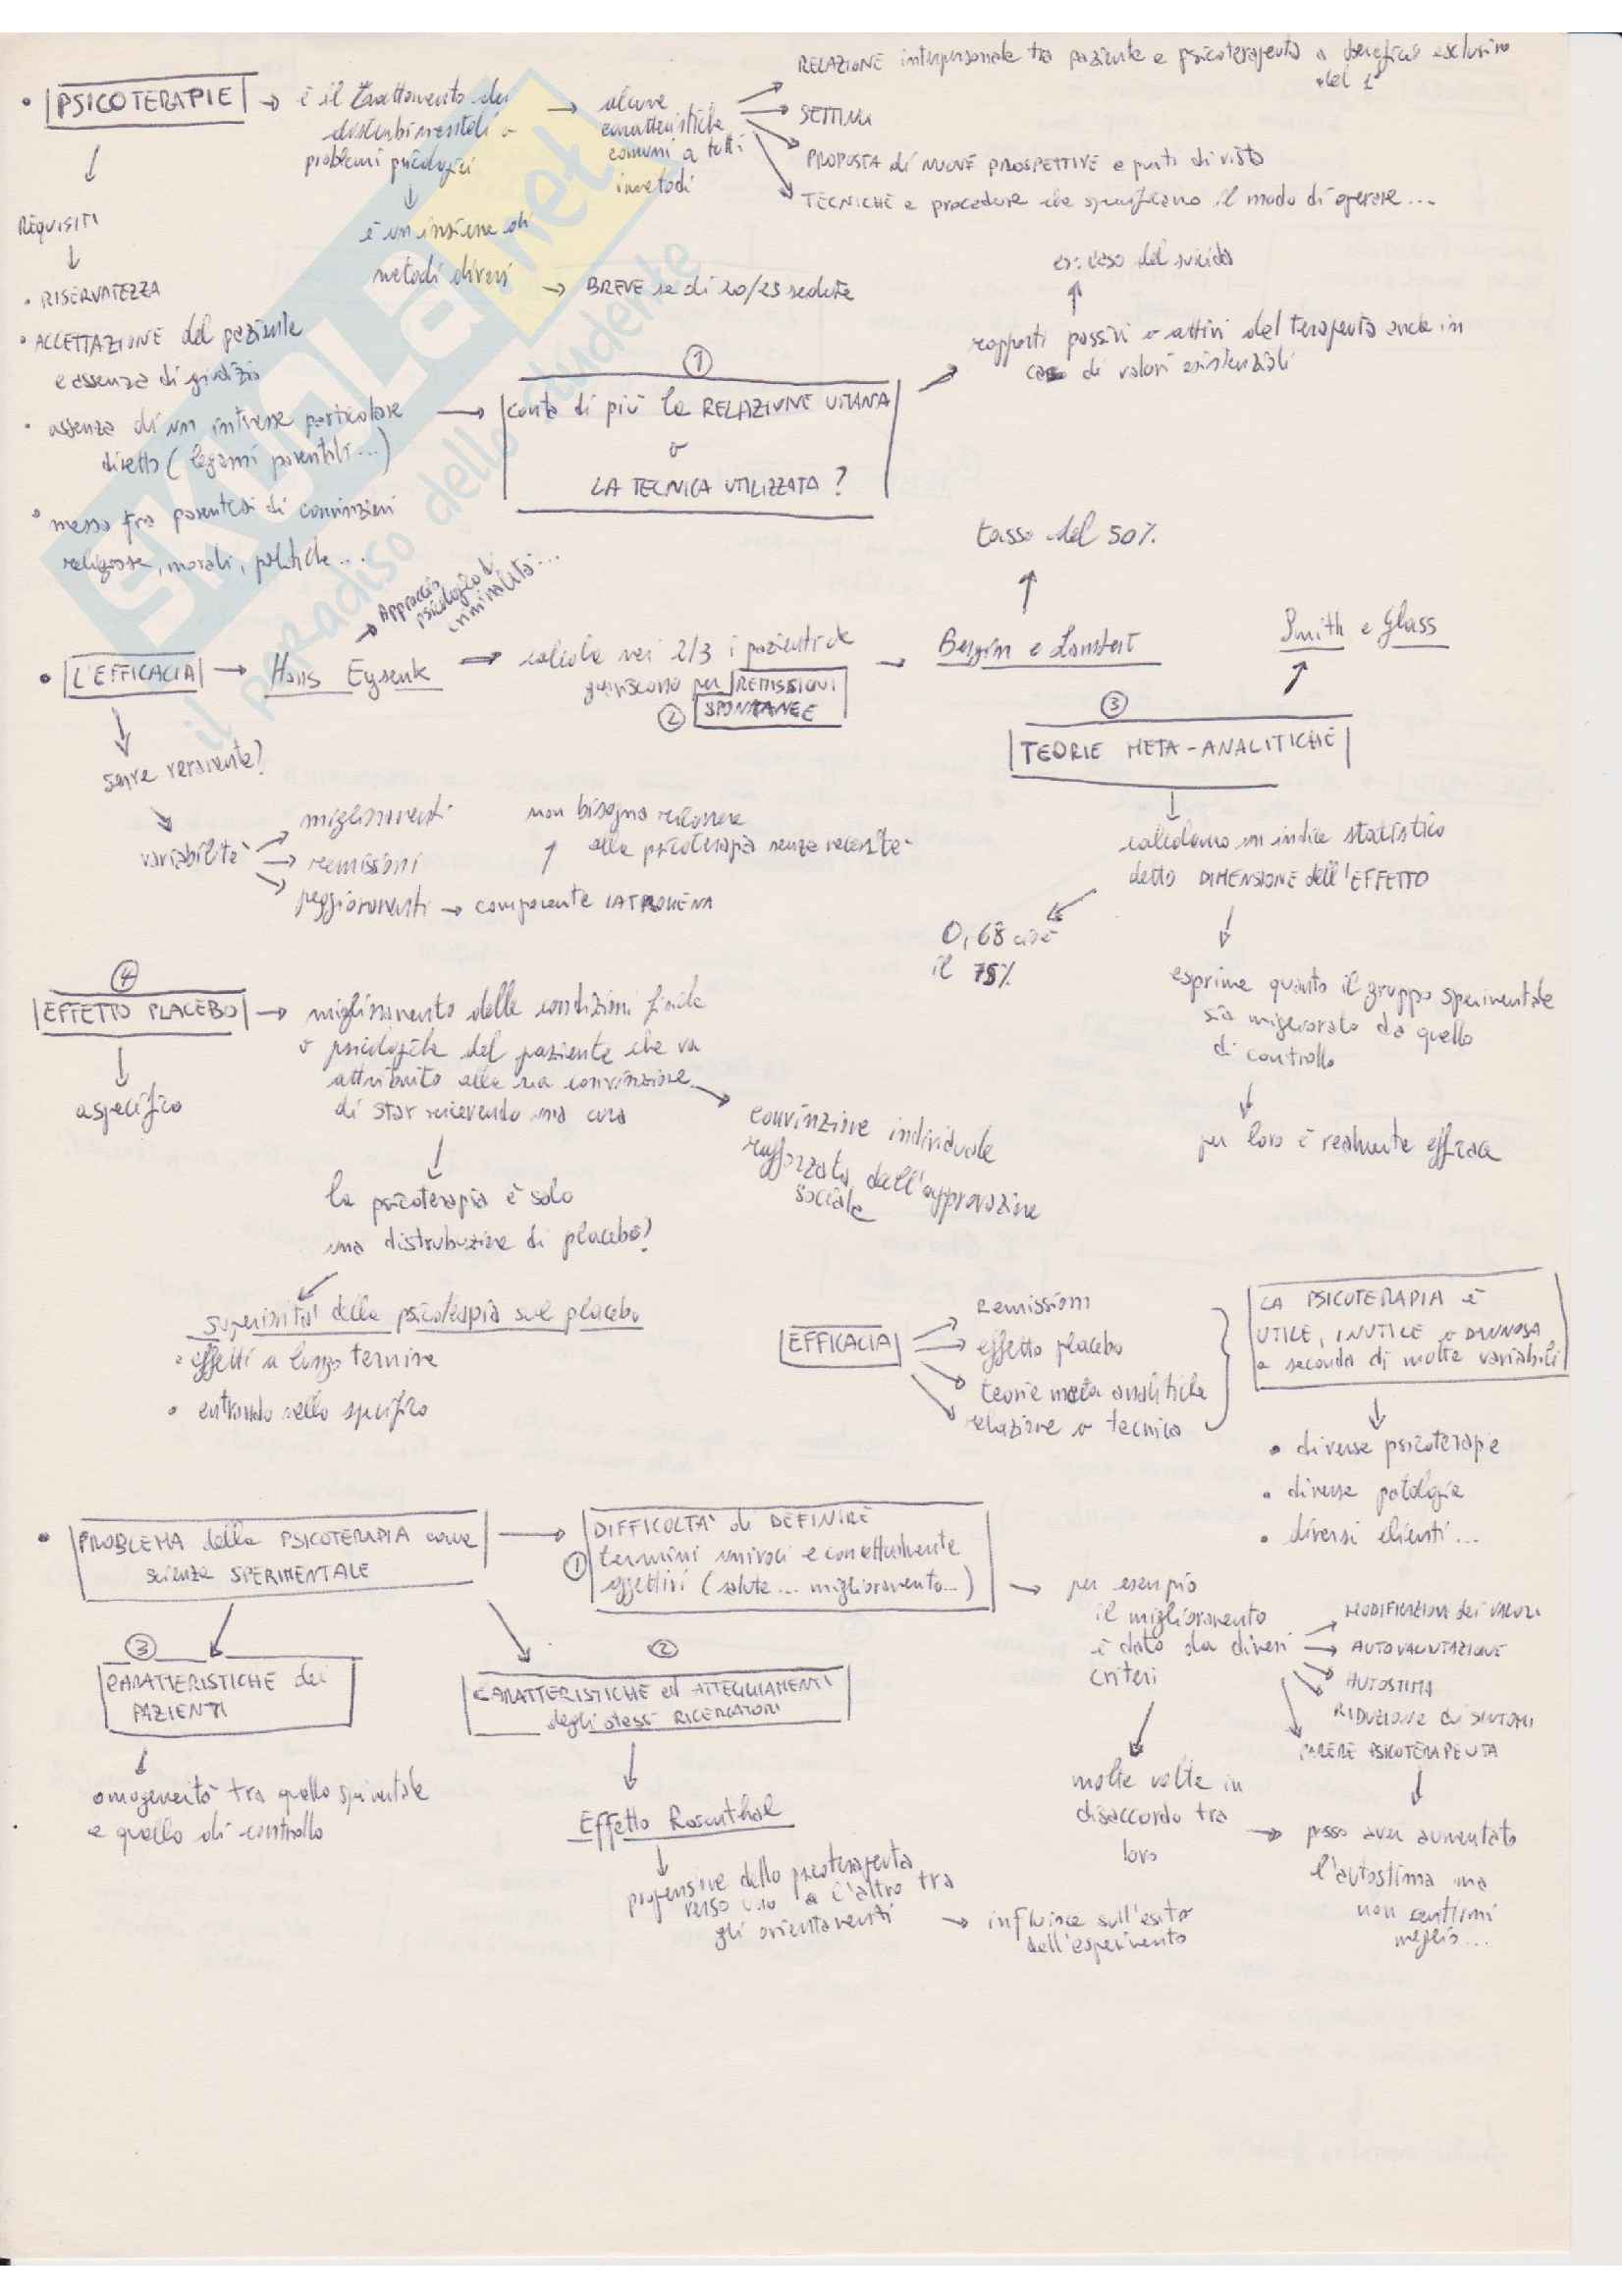 • PSICOTERAPIE → è il trattamento dei
disturbi mentali o
problemi psicologici
→ alcune
caratteristiche
comuni a tutti
i metodi
RELAZIONE interpersonale tra paziente e psicoterapeuta a beneficio esclusivo
del 1°
SETTING
PROPOSTA di NUOVE PROSPETTIVE e punti di vista
TECNICHE e procedure che specificano il modo di operare...
è un insieme di
metodi diversi
→ BREVE se di 20/25 sedute
REQUISITI
• RISERVATEZZA
• ACCETTAZIONE del paziente
e assenza di giudizio
• assenza di un interesse particolare
diretto (legami parentali...)
• messa fra parentesi di convinzioni
religiose, morali, politiche...
①
conta di più la RELAZIONE UMANA
o
LA TECNICA UTILIZZATA?
rapporti passivi o attivi del terapeuta anche in
caso di valori esistenziali
es: caso del suicida
• L'EFFICACIA → Hans Eysenk
Approccio
psicologico di
criminalità...
→ calcola nei 2/3 i pazienti che
guariscono per REMISSIONI
② SPONTANEE
→ Bergin e Lambert
tasso del 50%
Smith e Glass
③
TEORIE META-ANALITICHE
calcolano un indice statistico
detto DIMENSIONE dell'EFFETTO
0,68 cioè
il 75%
esprime quanto il gruppo sperimentale
sia migliorato da quello
di controllo
per loro è realmente efficace
serve veramente?
variabilità
miglioramenti
remissioni
peggioramenti → componente IATROGENA
non bisogna ricorrere
alla psicoterapia senza necessità
④
EFFETTO PLACEBO → miglioramento delle condizioni fisiche
o psicologiche del paziente che va
attribuito alla sua convinzione
di star ricevendo una cura
aspecifico
convinzione individuale
rafforzata dall'approvazione
sociale
la psicoterapia è solo
una distribuzione di placebo?
superiorità della psicoterapia sul placebo
• effetti a lungo termine
• entrando nello specifico
EFFICACIA
Remissioni
effetto placebo
teorie meta analitiche
relazione o tecnica
LA PSICOTERAPIA è
UTILE, INUTILE o DANNOSA
a seconda di molte variabili
• diverse psicoterapie
• diverse patologie
• diversi clienti...
• PROBLEMA della PSICOTERAPIA come
scienza SPERIMENTALE
①
DIFFICOLTA' di DEFINIRE
termini univoci e concettualmente
oggettivi (salute... miglioramento...)
→ per esempio
il miglioramento
è dato da diversi
criteri
MODIFICAZIONI dei VALORI
AUTOVALUTAZIONE
AUTOSTIMA
RIDUZIONE di SINTOMI
PARERE PSICOTERAPEUTA
molte volte in
disaccordo tra
loro
→ posso aver aumentato
l'autostima ma
non sentirmi
meglio...
③
CARATTERISTICHE dei
PAZIENTI
omogeneità tra quello sperimentale
e quello di controllo
②
CARATTERISTICHE ed ATTEGGIAMENTI
degli stessi RICERCATORI
Effetto Rosenthal
propensione dello psicoterapeuta
verso uno o l'altro tra
gli orientamenti
→ influisce sull'esito
dell'esperimento
SKUOLA.net
il paradiso dello studente